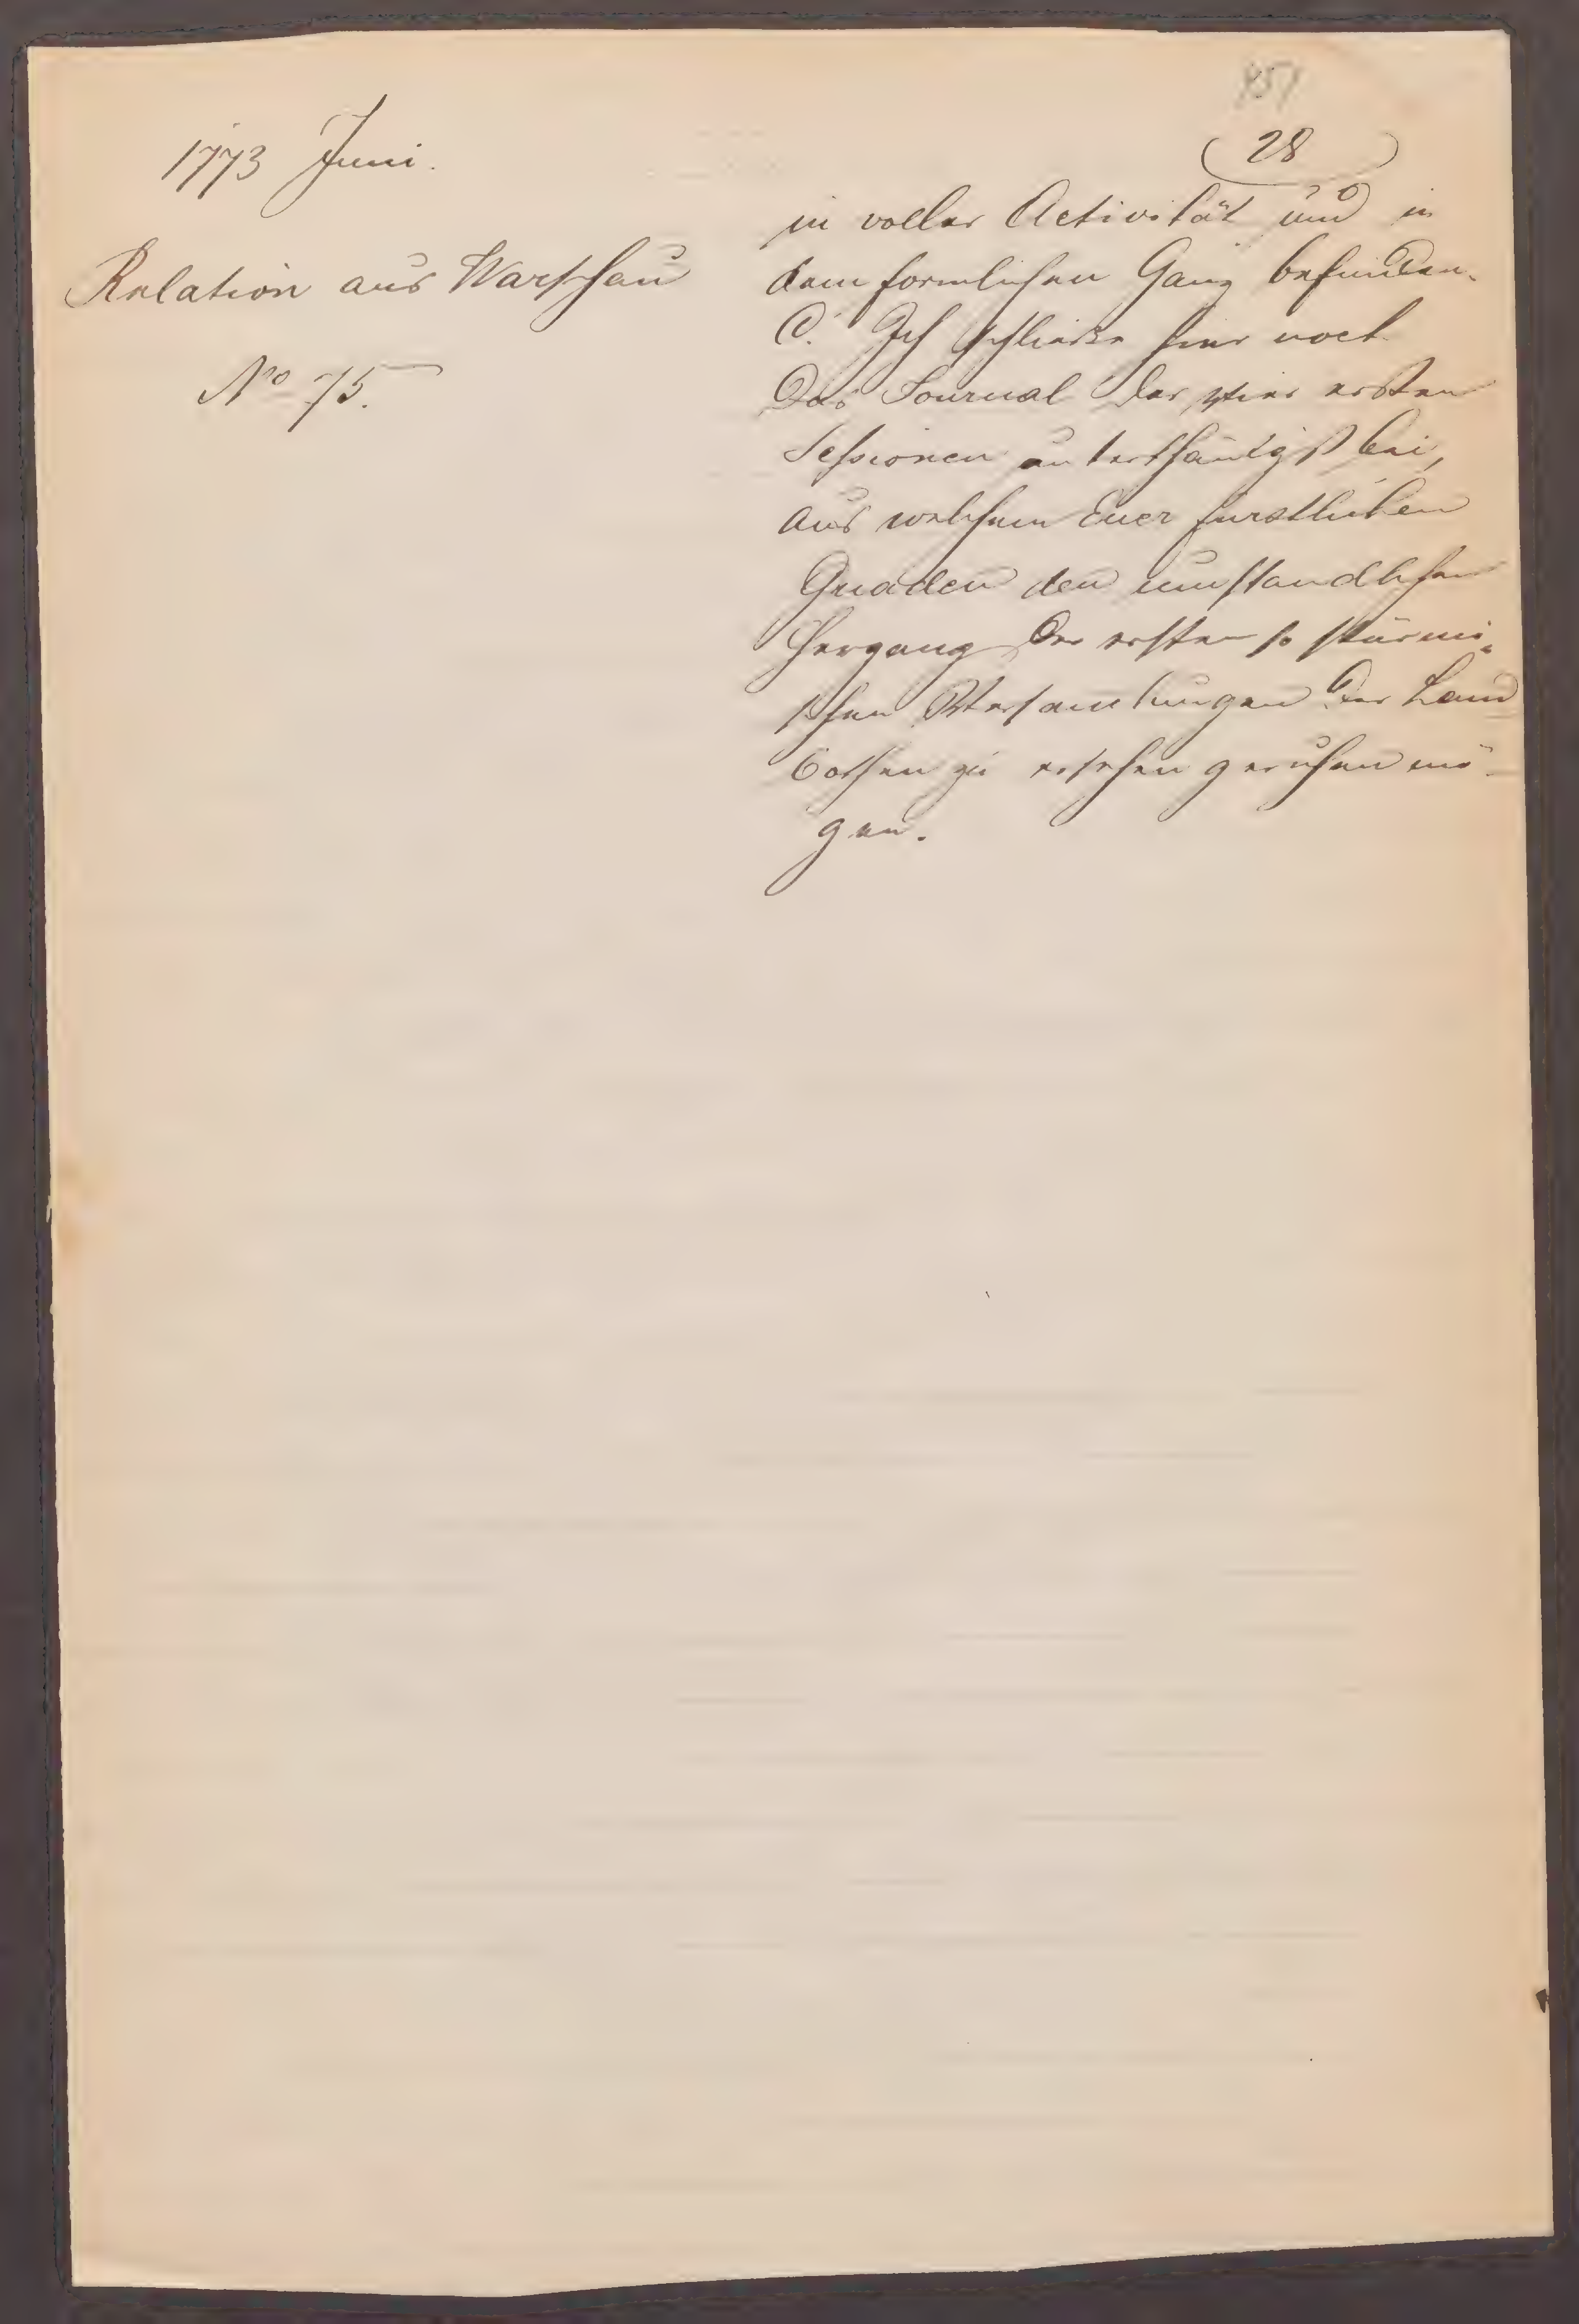 151
28
1773 Juni.
Relation aus Warschau
No 75.
in voller Activität und in
dem formlichen Gang befinden.
C. Ich schließe hier noch
das Journal der vier ersten
Sessionen unterthänigst bei,
aus welchem Euer furstlichen
Gnaden den umstandlichen
Hergang der ersten so stürmi-
schen Versamlungen der Land
bothen zu ersehen geruhen mö-
gen.